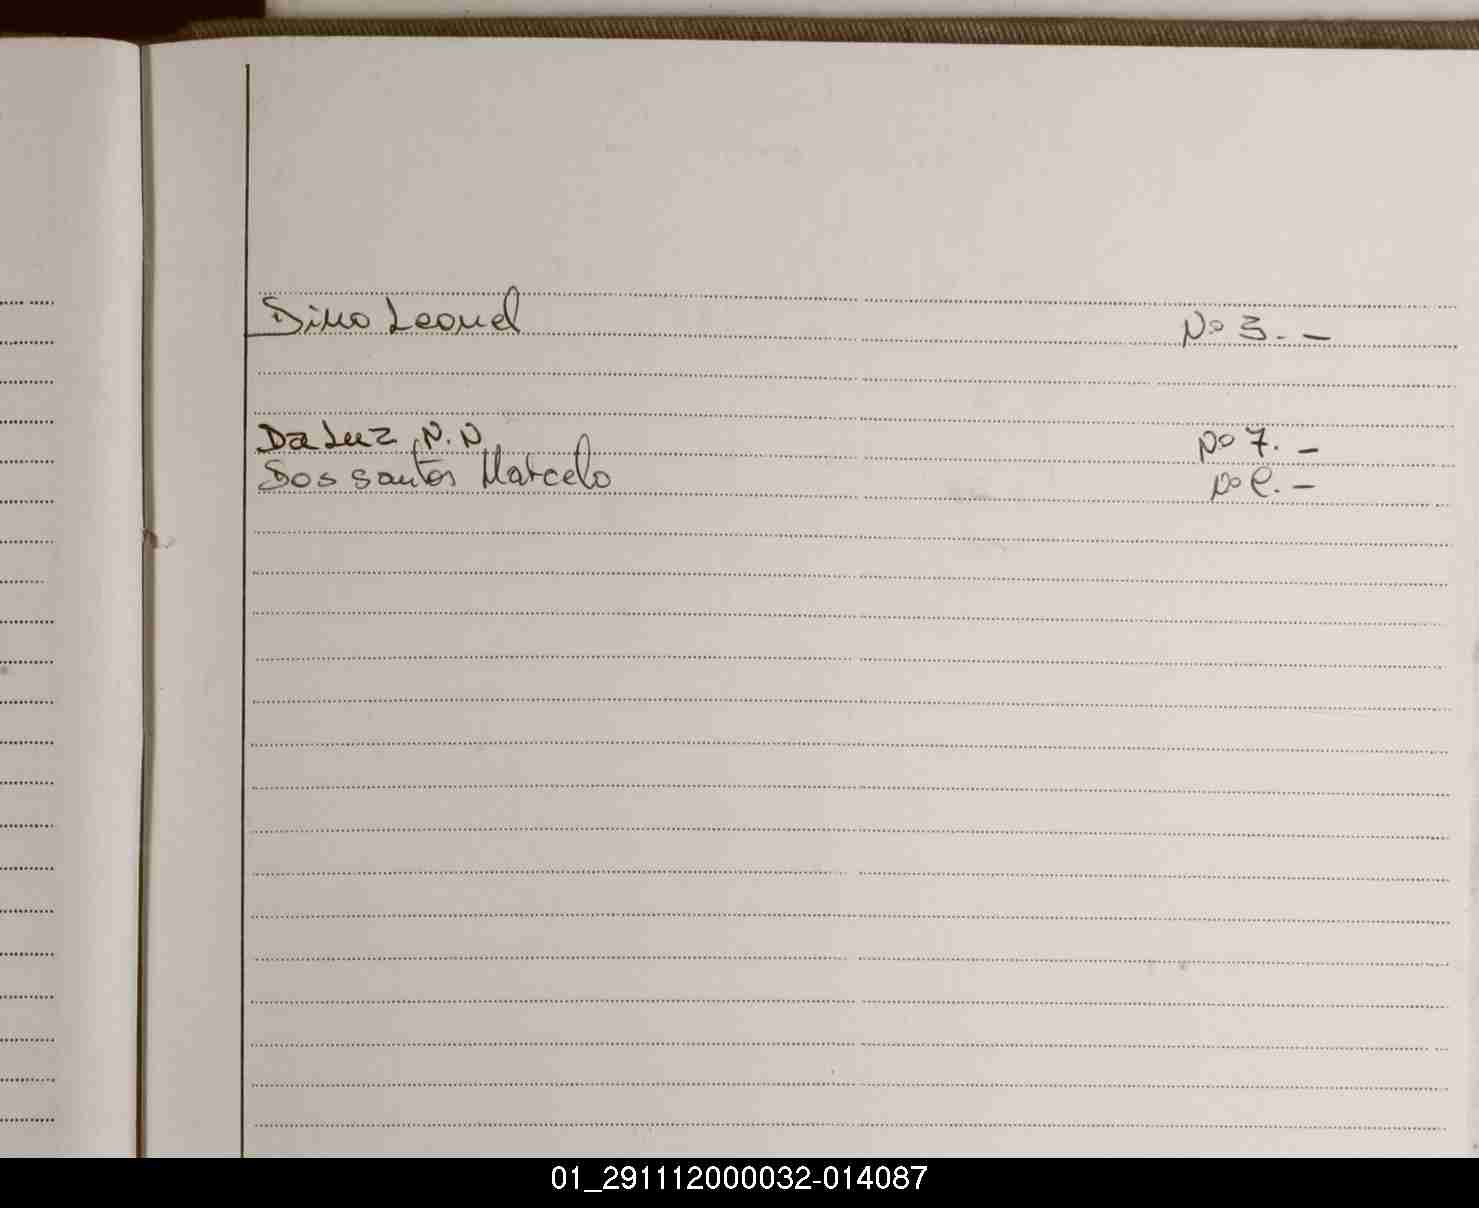 Dino Leonel No 3. -
Da Luz N.N No 7. -
Dos santos Marcelo No
01_291112000032-014087